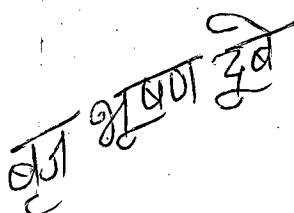 बृज भूषण दूबे